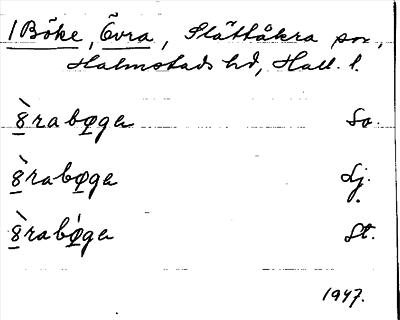 1 Böke, Övra, Slättåkra sn,
Halmstads hd, Hall. l.
8̀rabøga So.
8̀rabøga Lj.
8̀rabǿga St.
1947.